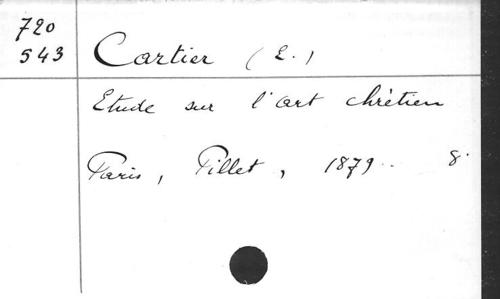 720
543
Cartier (E.)
Etude sur l'art chrétien
Paris, Pillet, 1879.. 8°